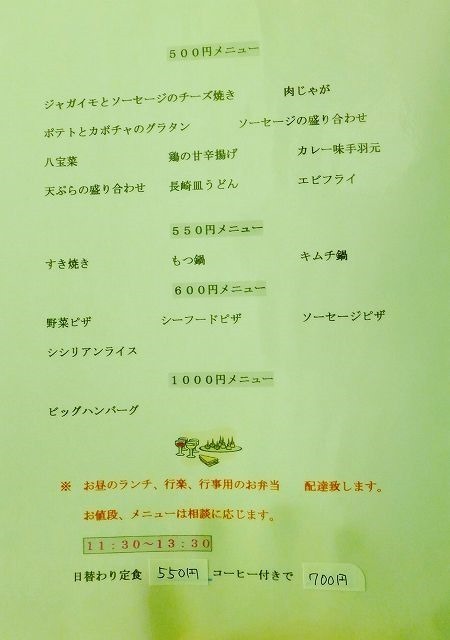 500円メニュー
ジャガイモとソーセージのチーズ焼き　肉じゃが
ポテトとカボチャのグラタン　ソーセージの盛り合わせ
八宝菜　鶏の甘辛揚げ　カレー味手羽元
天ぷらの盛り合わせ　長崎皿うどん　エビフライ
550円メニュー
すき焼き　もつ鍋　キムチ鍋
600円メニュー
野菜ピザ　シーフードピザ　ソーセージピザ
シシリアンライス
1000円メニュー
ビッグハンバーグ
※　お昼のランチ、行楽、行事用のお弁当　配達致します。
お値段、メニューは相談に応じます。
11:30～13:30
日替わり定食　550円　コーヒー付きで　700円